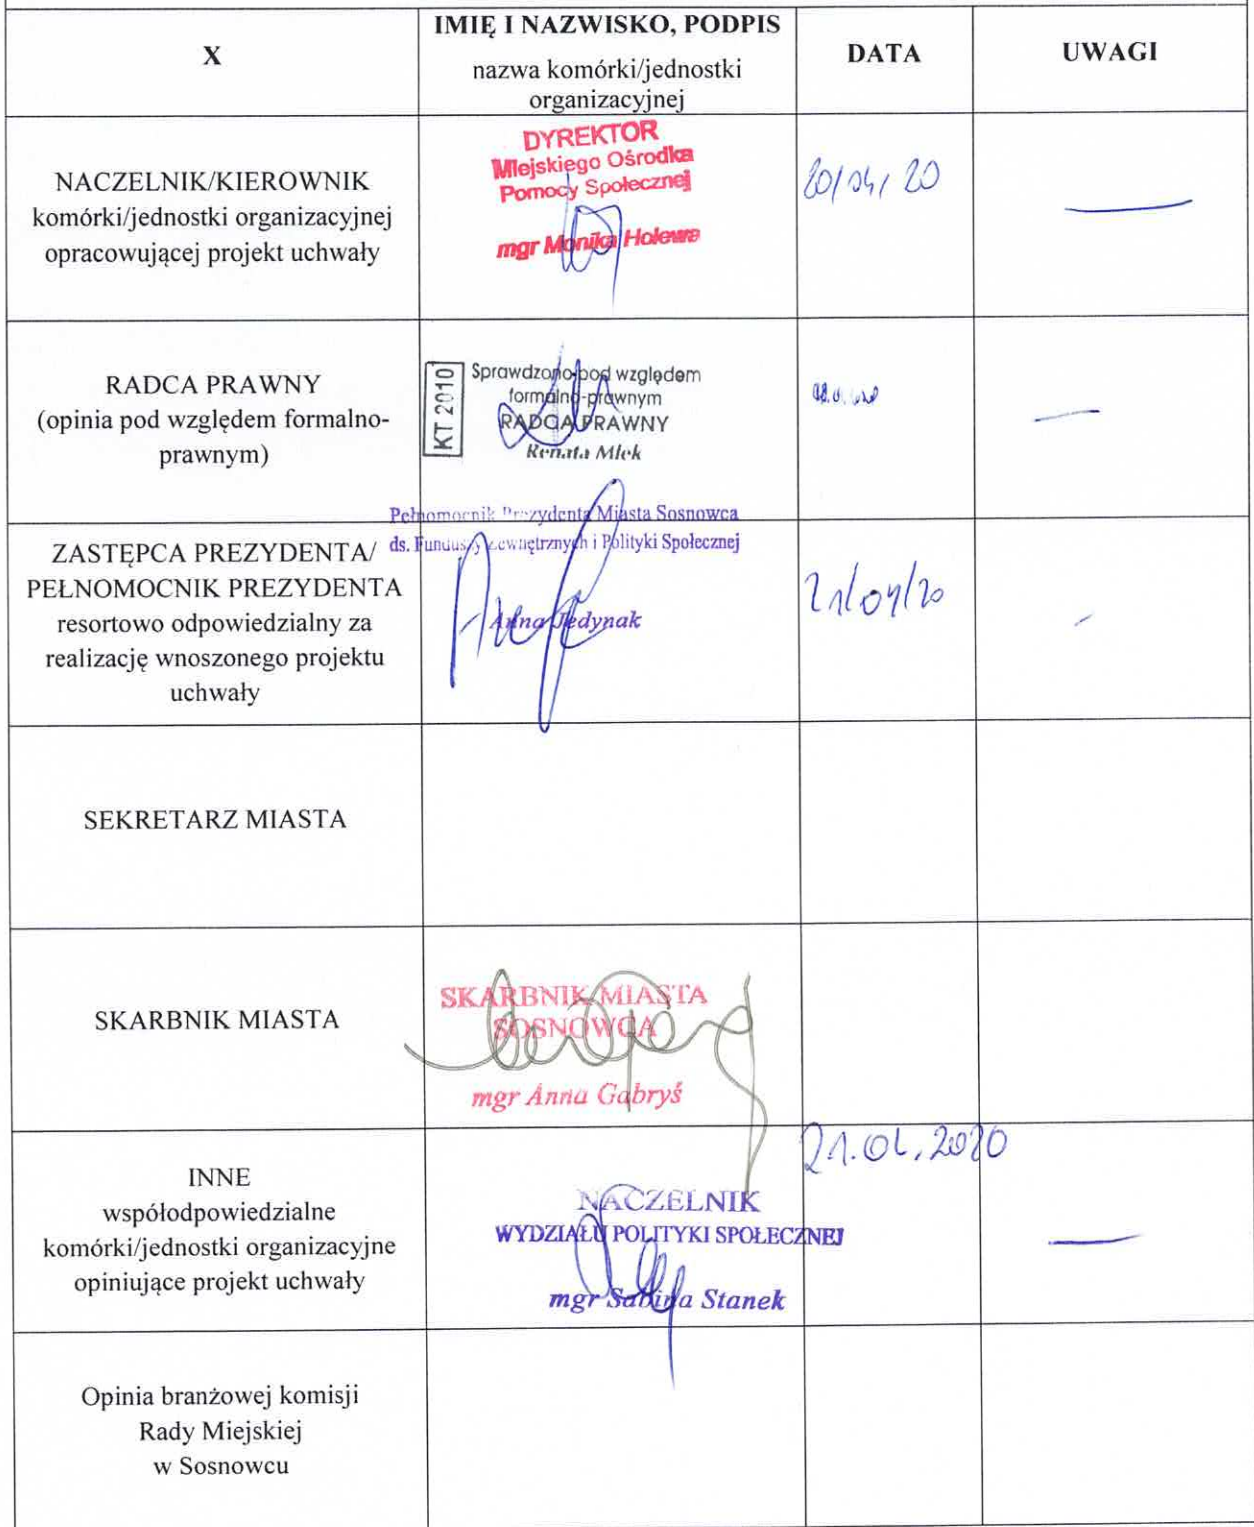 X
IMIĘ I NAZWISKO, PODPIS
nazwa komórki/jednostki
organizacyjnej
DATA
UWAGI
NACZELNIK/KIEROWNIK
komórki/jednostki organizacyjnej
opracowującej projekt uchwały
DYREKTOR
Miejskiego Ośrodka
Pomocy Społecznej
mgr Monika Holewa
20/04/20
RADCA PRAWNY
(opinia pod względem formalno-
prawnym)
KT 2010
Sprawdzono pod względem
formalno-prawnym
RADCA PRAWNY
Renata Mlek
ZASTĘPCA PREZYDENTA/
PEŁNOMOCNIK PREZYDENTA
resortowo odpowiedzialny za
realizację wnoszonego projektu
uchwały
Pełnomocnik Prezydenta Miasta Sosnowca
ds. Funduszy Zewnętrznych i Polityki Społecznej
Anna Jedynak
21/04/20
SEKRETARZ MIASTA
SKARBNIK MIASTA
SKARBNIK MIASTA
SOSNOWCA
mgr Anna Gabryś
INNE
współodpowiedzialne
komórki/jednostki organizacyjne
opiniujące projekt uchwały
NACZELNIK
WYDZIAŁU POLITYKI SPOŁECZNEJ
mgr Sabina Stanek
21.04.2020
Opinia branżowej komisji
Rady Miejskiej
w Sosnowcu